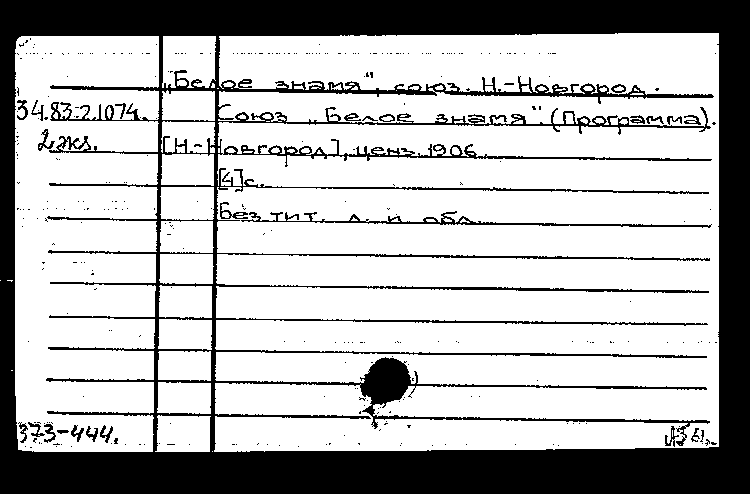 „Белое знамя“, союз. Н.-Новгород.
34.83.2.1074. Союз „Белое знамя“. (Программа).
2 экз. [Н.-Новгород], ценз. 1906.
[4]с.
Без тит. л. и обл.
373-444.